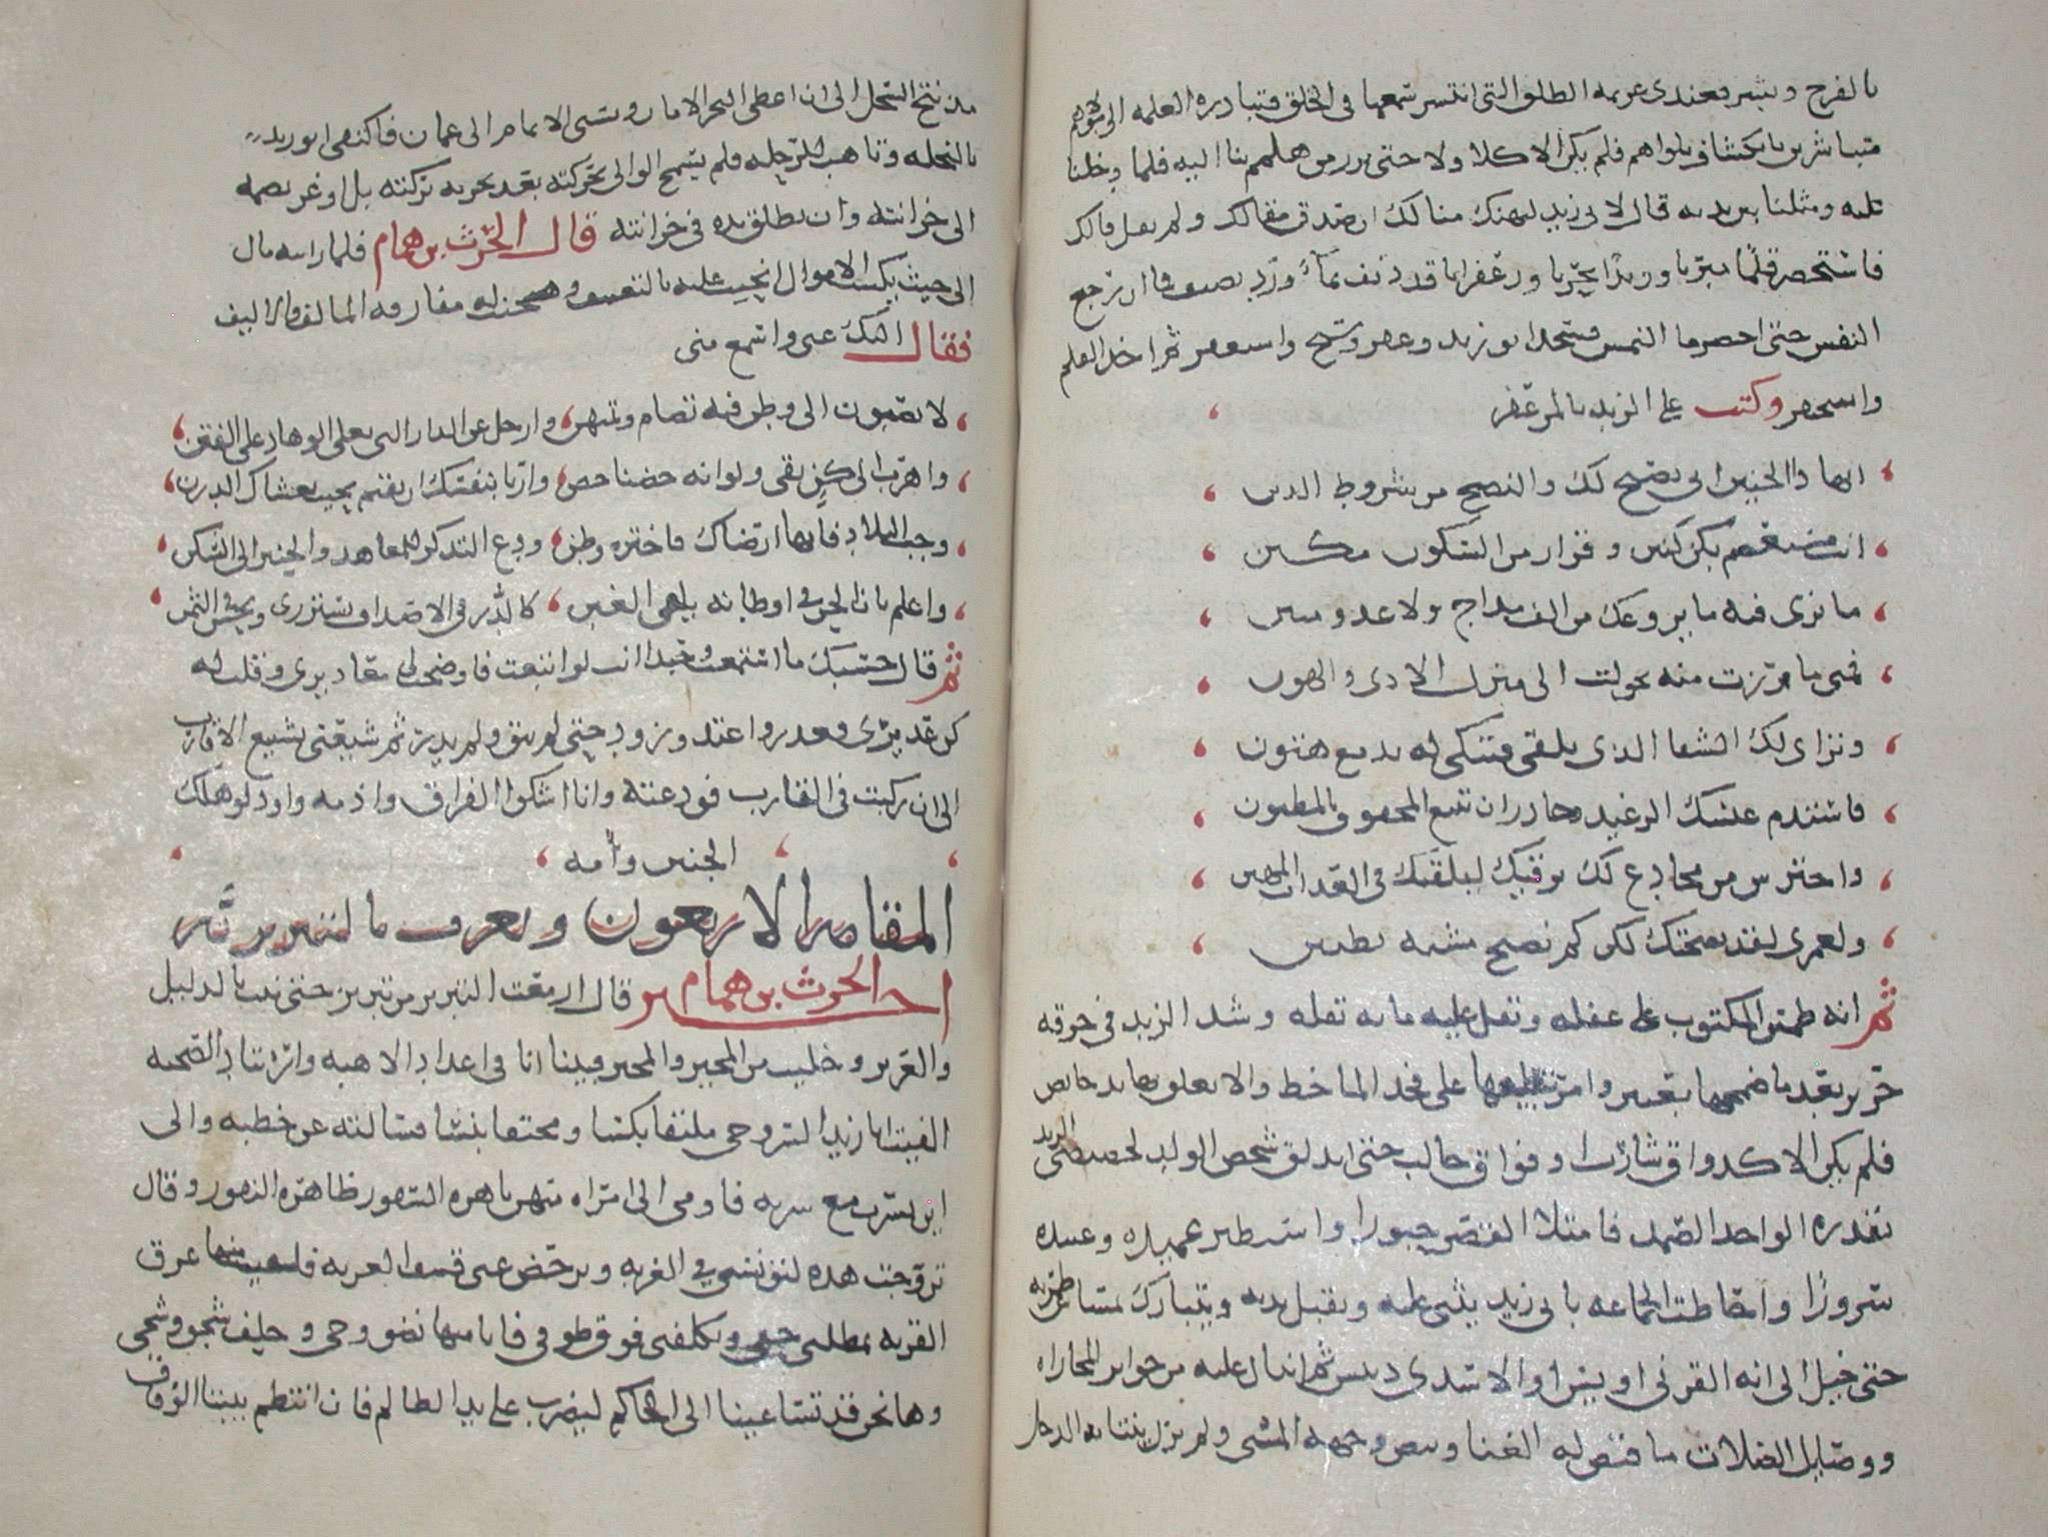 بالفرج وبشر فعندي عزيمه الطلق التي انتشر سمعها في الخلق فتبادره الغلمه الى مولاهم
متباشرين بانكشاف بلواهم فلم يكن الا كلا ولا حتى برز من هلمم بنا اليه فلما دخلنا
عليه ومثلنا بين يديه قال لابي زيد ليهنك منالك ان صدق مقالك ولم يفل فالك
فاستحضر قلما مبريا وزبدا بحريا وزعفرانا قد ديف في ماء ورد نظيف فما ان رجع
النفس حتى احضر ما التمس فسجد ابو زيد وعفر وسبح واستغفر ثم اخذ القلم
واسحنفر وكتب على الزبد بالمزعفر
ايهاذا الجنين اني نصيح لك والنصح من شروط الدين
انت مستعصم بكن كنين وقرار من السكون مكين
ما ترى فيه ما يروعك من الف مداج ولا عدو مبين
فمتى ما برزت منه تحولت الى منزل الاذى والهون
وتراى لك الشقا الذي يلقى فتبكي له بدمع هتون
فاستدم عيشك الرغيد وحاذر ان تبيع المحقوق بالمظنون
واحترس من مخادع لك يرقيك ليلقيك في العذاب المهين
ولعمري لقد نصحتك لكن كم نصيح مشبه بظنين
ثم انه طمس المكتوب على غفله وتفل عليه مايه تفله وشد الزبد في خرقه
حرير بعد ما ضمخها بعبير وامر بتعليقها على فخذ الماخض والا تعلق بها يد حايض
فلم يكن الا كذواق شارب او فواق حالب حتى اندلق شخص الولد لخصيصى الزبد
بقدره الواحد الصمد فامتلا القصر حبورا واستطير عميده وعبيده
سرورا واحاطت الجماعه بابي زيد يثني عليه ويقبل يديه ويتبارك بمساس طمريه
حتى خيل الي انه القرني اويس او الاسدي دبيس ثم انثال عليه من جوايز المجازاه
ووصايل الصلات ما قيض له الغنا وبيض وجه المنى ولم يزل ينتابه الدخل
مذ نتج السخل الى ان اعطى البحر الامان وتسنى الاتمام الى عمان فاكتفى ابو زيد
بالنحله وتاهب للرحله فلم يسمح الوالي بحركته بعد تجربه بركته بل اوعز بضمه
الى خزانته وان تطلق يده في خزانته قال الحرث بن همام فلما رايته مال
الى حيث يكسب الاموال انحيت عليه بالتعنيف وهجنت له مفارقه المالف والاليف
فقال اليك عني واسمع مني
لا تصبون الى وطن فيه تضام وتمتهن وارحل عن الدار التي تعلي الوهاد على القنن
واهرب الى كن يقي ولو انه حضنا حضن واربا بنفسك ان تقيم بحيث يغشاك الدرن
وجب البلاد فايها ارضاك فاختره وطن ودع التذكر للمعاهد والحنين الى السكن
واعلم بان الحر في اوطانه يلقى الغبن كالدر في الاصداف يستزرى ويبخس الثمن
ثم قال حسبك ما استمعت وحبذا انت لو اتبعت فاوضحت له معاذيري وقلت له
كن عذيري فعذر واعتذر وزود حتى لم يبق ولم يذر ثم شيعني تشييع الاقارب
الى ان ركبت في القارب فودعته وانا اشكوا الفراق واذمه واود لو هلك
الجنين وامه
المقامه الاربعون وتعرف بالتبريزيه
اخبر الحرث بن همام قال ازمعت التبريز من تبريز حين نبت بالذليل
والعزيز وخلت من المجير والمجيز فبينا انا في اعداد الاهبه وارتياد الصحبه
الفيت ابا زيد السروجي ملتفا بكسا ومحتفا بنسا فسالته عن خطبه والى
اين يسرب مع سربه فاومى الى امراه منهن باهره السفور ظاهره النفور وقال
تزوجت هذه لتونسني في الغربه وترحض عني قشف العزبه فلقيت منها عرق
القربه تمطلني حقي وتكلفني فوق طوقي فانا منها نضو وجى وحليف شجو وشجى
وها نحن قد تساعينا الى الحاكم ليضرب على يد الظالم فان انتظم بيننا الوفاق